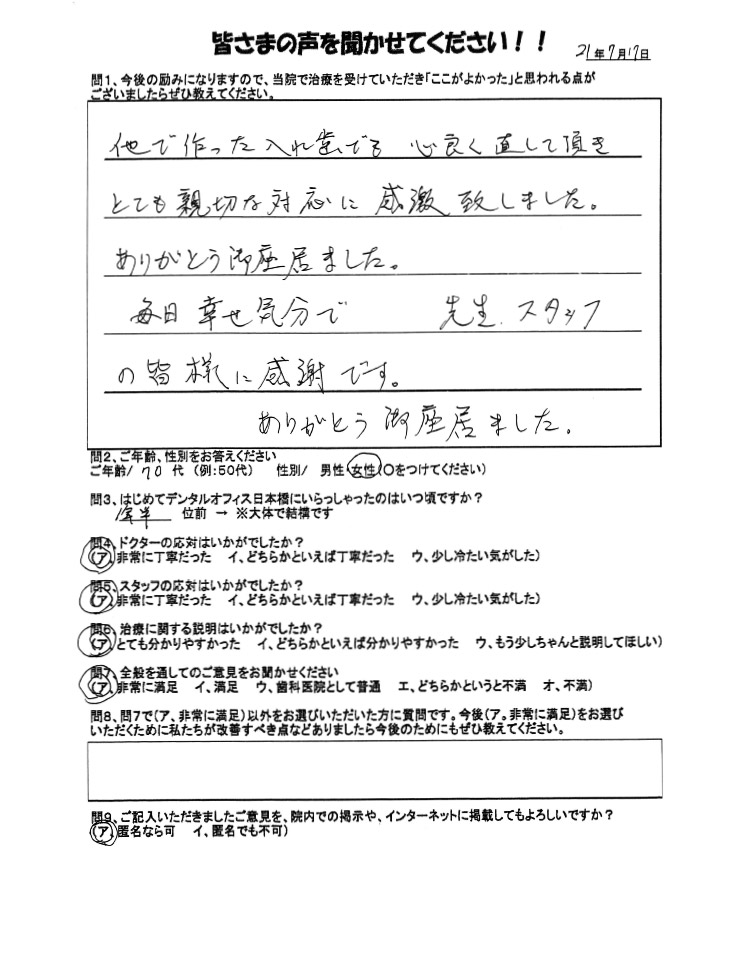 皆さまの声を聞かせてください！！
21年7月17日
問1、今後の励みになりますので、当院で治療を受けていただき「ここがよかった」と思われる点が
ございましたらぜひ教えてください。
他で作った入れ歯でも 心良く直して頂き
とても親切な対応に 感激致しました。
ありがとう御座居ました。
毎日幸せ気分で 先生、スタッフ
の皆様に感謝です。
ありがとう御座居ました。
問2、ご年齢、性別をお答えください
ご年齢/ 70 代 (例:50代) 性別/ 男性 女性(○をつけてください)
問3、はじめてデンタルオフィス日本橋にいらっしゃったのはいつ頃ですか？
年半 位前 → ※大体で結構です
問4、ドクターの応対はいかがでしたか？
(ア、非常に丁寧だった イ、どちらかといえば丁寧だった ウ、少し冷たい気がした)
問5、スタッフの応対はいかがでしたか？
(ア、非常に丁寧だった イ、どちらかといえば丁寧だった ウ、少し冷たい気がした)
問6、治療に関する説明はいかがでしたか？
(ア、とても分かりやすかった イ、どちらかといえば分かりやすかった ウ、もう少しちゃんと説明してほしい)
問7、全般を通してのご意見をお聞かせください
(ア、非常に満足 イ、満足 ウ、歯科医院として普通 エ、どちらかというと不満 オ、不満)
問8、問7で(ア、非常に満足)以外をお選びいただいた方に質問です。今後(ア。非常に満足)をお選び
いただくために私たちが改善すべき点などありましたら今後のためにもぜひ教えてください。
問9、ご記入いただきましたご意見を、院内での掲示や、インターネットに掲載してもよろしいですか？
(ア、匿名なら可 イ、匿名でも不可)